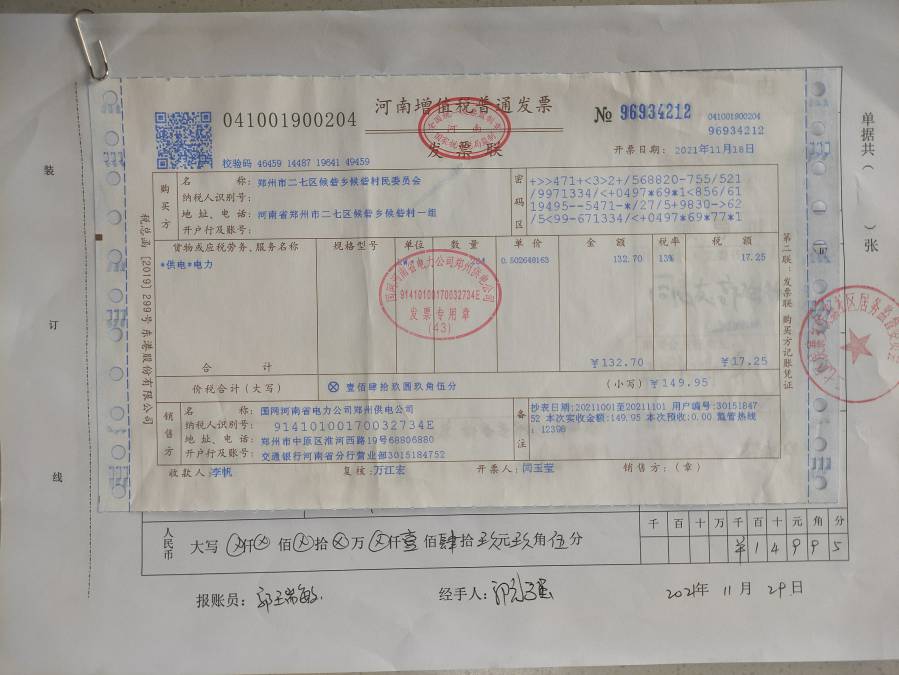 河南增值税普通发票
发票联
041001900204
№ 96934212
041001900204
96934212
校验码 46459 14487 19641 49459
开票日期: 2021年11月18日
购买方
名 称: 郑州市二七区候砦乡候砦村民委员会
纳税人识别号:
地 址、电 话: 河南省郑州市二七区候砦乡候砦村一组
开户行及账号:
密码区
+>>471+<3>2+/568820-755/521
/9971334/<+0497*69*1<856/61
19495--5471-*/27/5+9830->62
/5<99-671334/<+0497*69*77*1
货物或应税劳务、服务名称 规格型号 单位 数 量 单 价 金 额 税率 税 额
*供电*电力 0.502649163 132.70 13% 17.25
国网河南省电力公司郑州供电公司
91410100170032734E
发票专用章
(43)
合 计 ¥132.70 ¥17.25
价税合计(大写) ⊗ 壹佰肆拾玖圆玖角伍分 (小写) ¥149.95
销售方
名 称: 国网河南省电力公司郑州供电公司
纳税人识别号: 91410100170032734E
地 址、电 话: 郑州市中原区淮河西路19号68806880
开户行及账号: 交通银行河南省分行营业部3015184752
备注
抄表日期:20211001至20211101 用户编号:30151847
52 本次实收金额:149.95 本次预收:0.00 监管热线
: 12398
收款人: 李帆 复核: 万江宏 开票人: 闫玉莹 销售方:(章)
税总函[2019]299号 东港股份有限公司
第二联:发票联 购买方记账凭证
单据共( )张
装
订
线
人民币
大写 仟 佰 拾 万 仟壹佰肆拾玖元玖角伍分
千 百 十 万 千 百 十 元 角 分
¥ 1 4 9 9 5
报账员:
经手人:
2021年 11 月 29 日